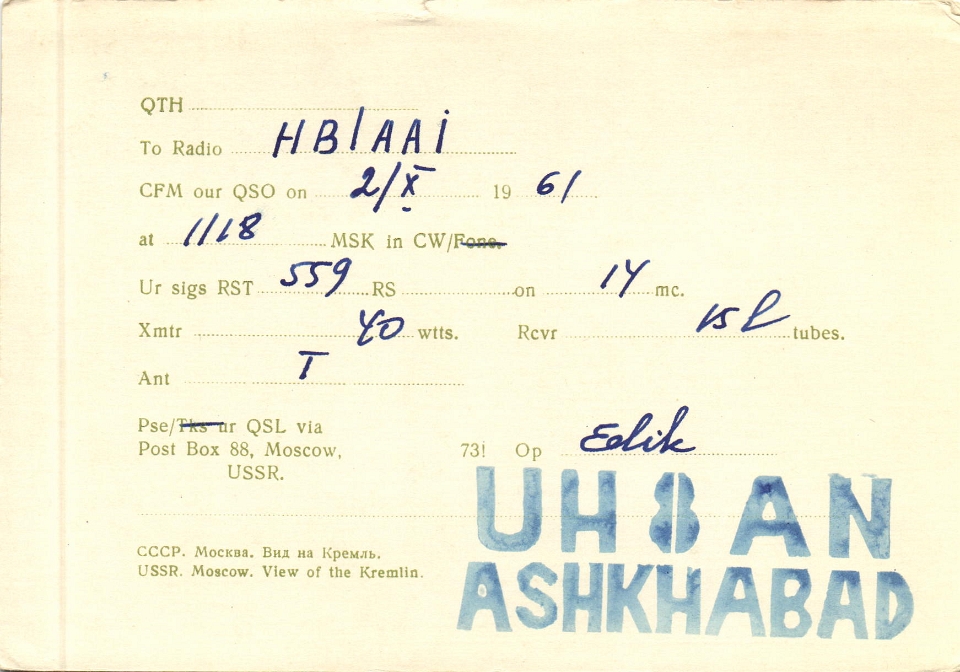 QTH
To Radio HB1AAi
CFM our QSO on 2/X 1961
at 1118 MSK in CW/Fone.
Ur sigs RST 559 RS on 14 mc.
Xmtr 40 wtts. Rcvr 15 tubes.
Ant T
Pse/Tks ur QSL via
Post Box 88, Moscow, 73! Op Edik
USSR.
UH8AN
ASHKHABAD
СССР. Москва. Вид на Кремль.
USSR. Moscow. View of the Kremlin.